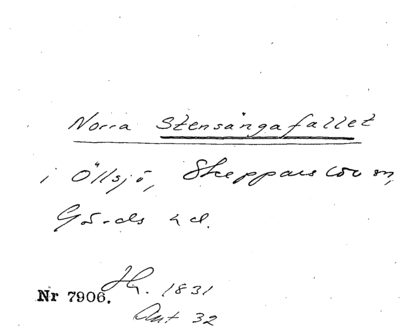 Norra Stensångafallet
i Öllsjö, Skepparslöv sn,
Gärds hd.
Nr 7906. Hy. 1831
Akt 32